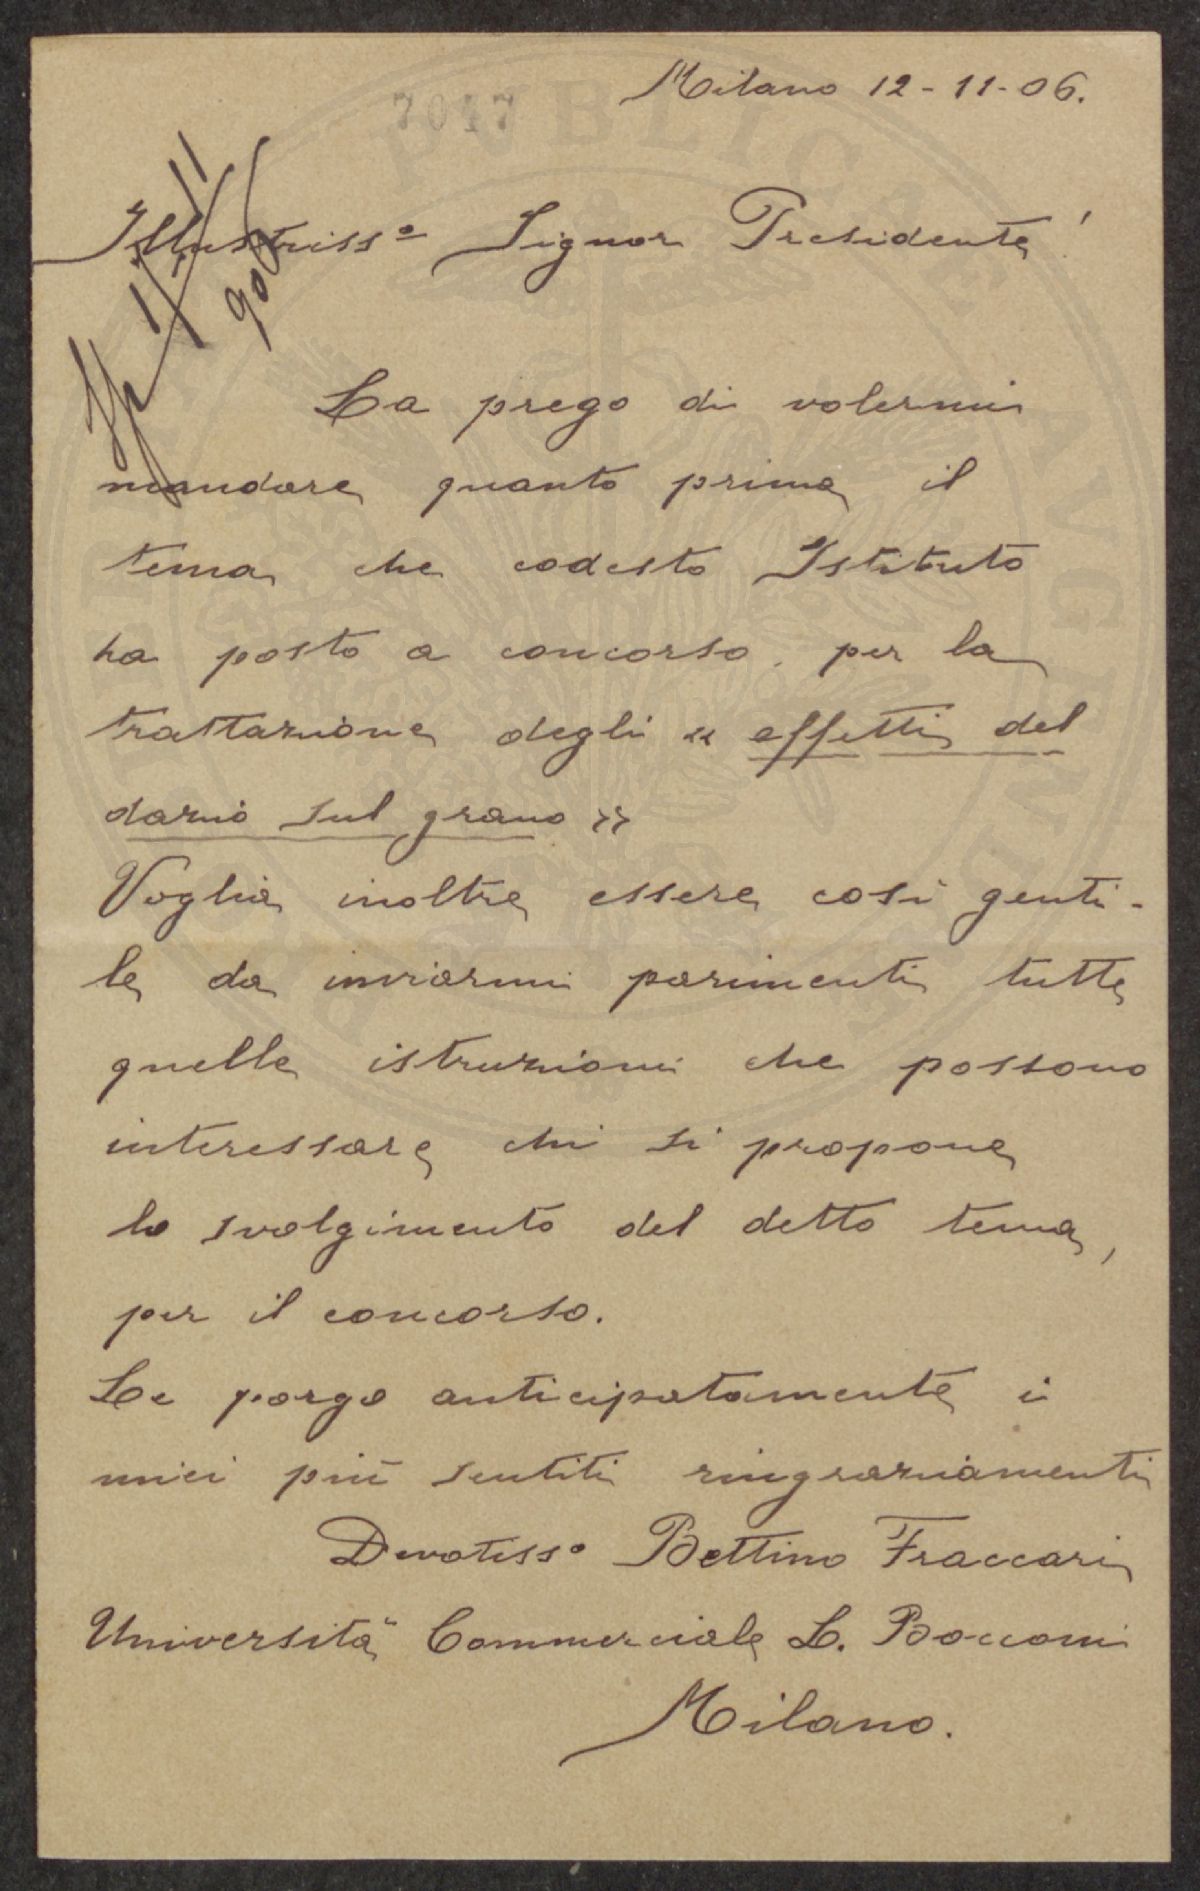 Milano 12-11-06.
7047
Illustriss.º Signor Presidente!
La prego di volermi
mandare quanto prima il
tema che codesto Istituto
ha posto a concorso per la
trattazione degli « effetti del
dazio sul grano »
Voglia inoltre essere così genti-
le da inviarmi parimenti tutte
quelle istruzioni che possono
interessare chi si propone
lo svolgimento del detto tema,
per il concorso.
Le porgo anticipatamente i
miei più sentiti ringraziamenti
Devotiss.º Bettino Fraccari
Università Commerciale L. Bocconi
Milano.